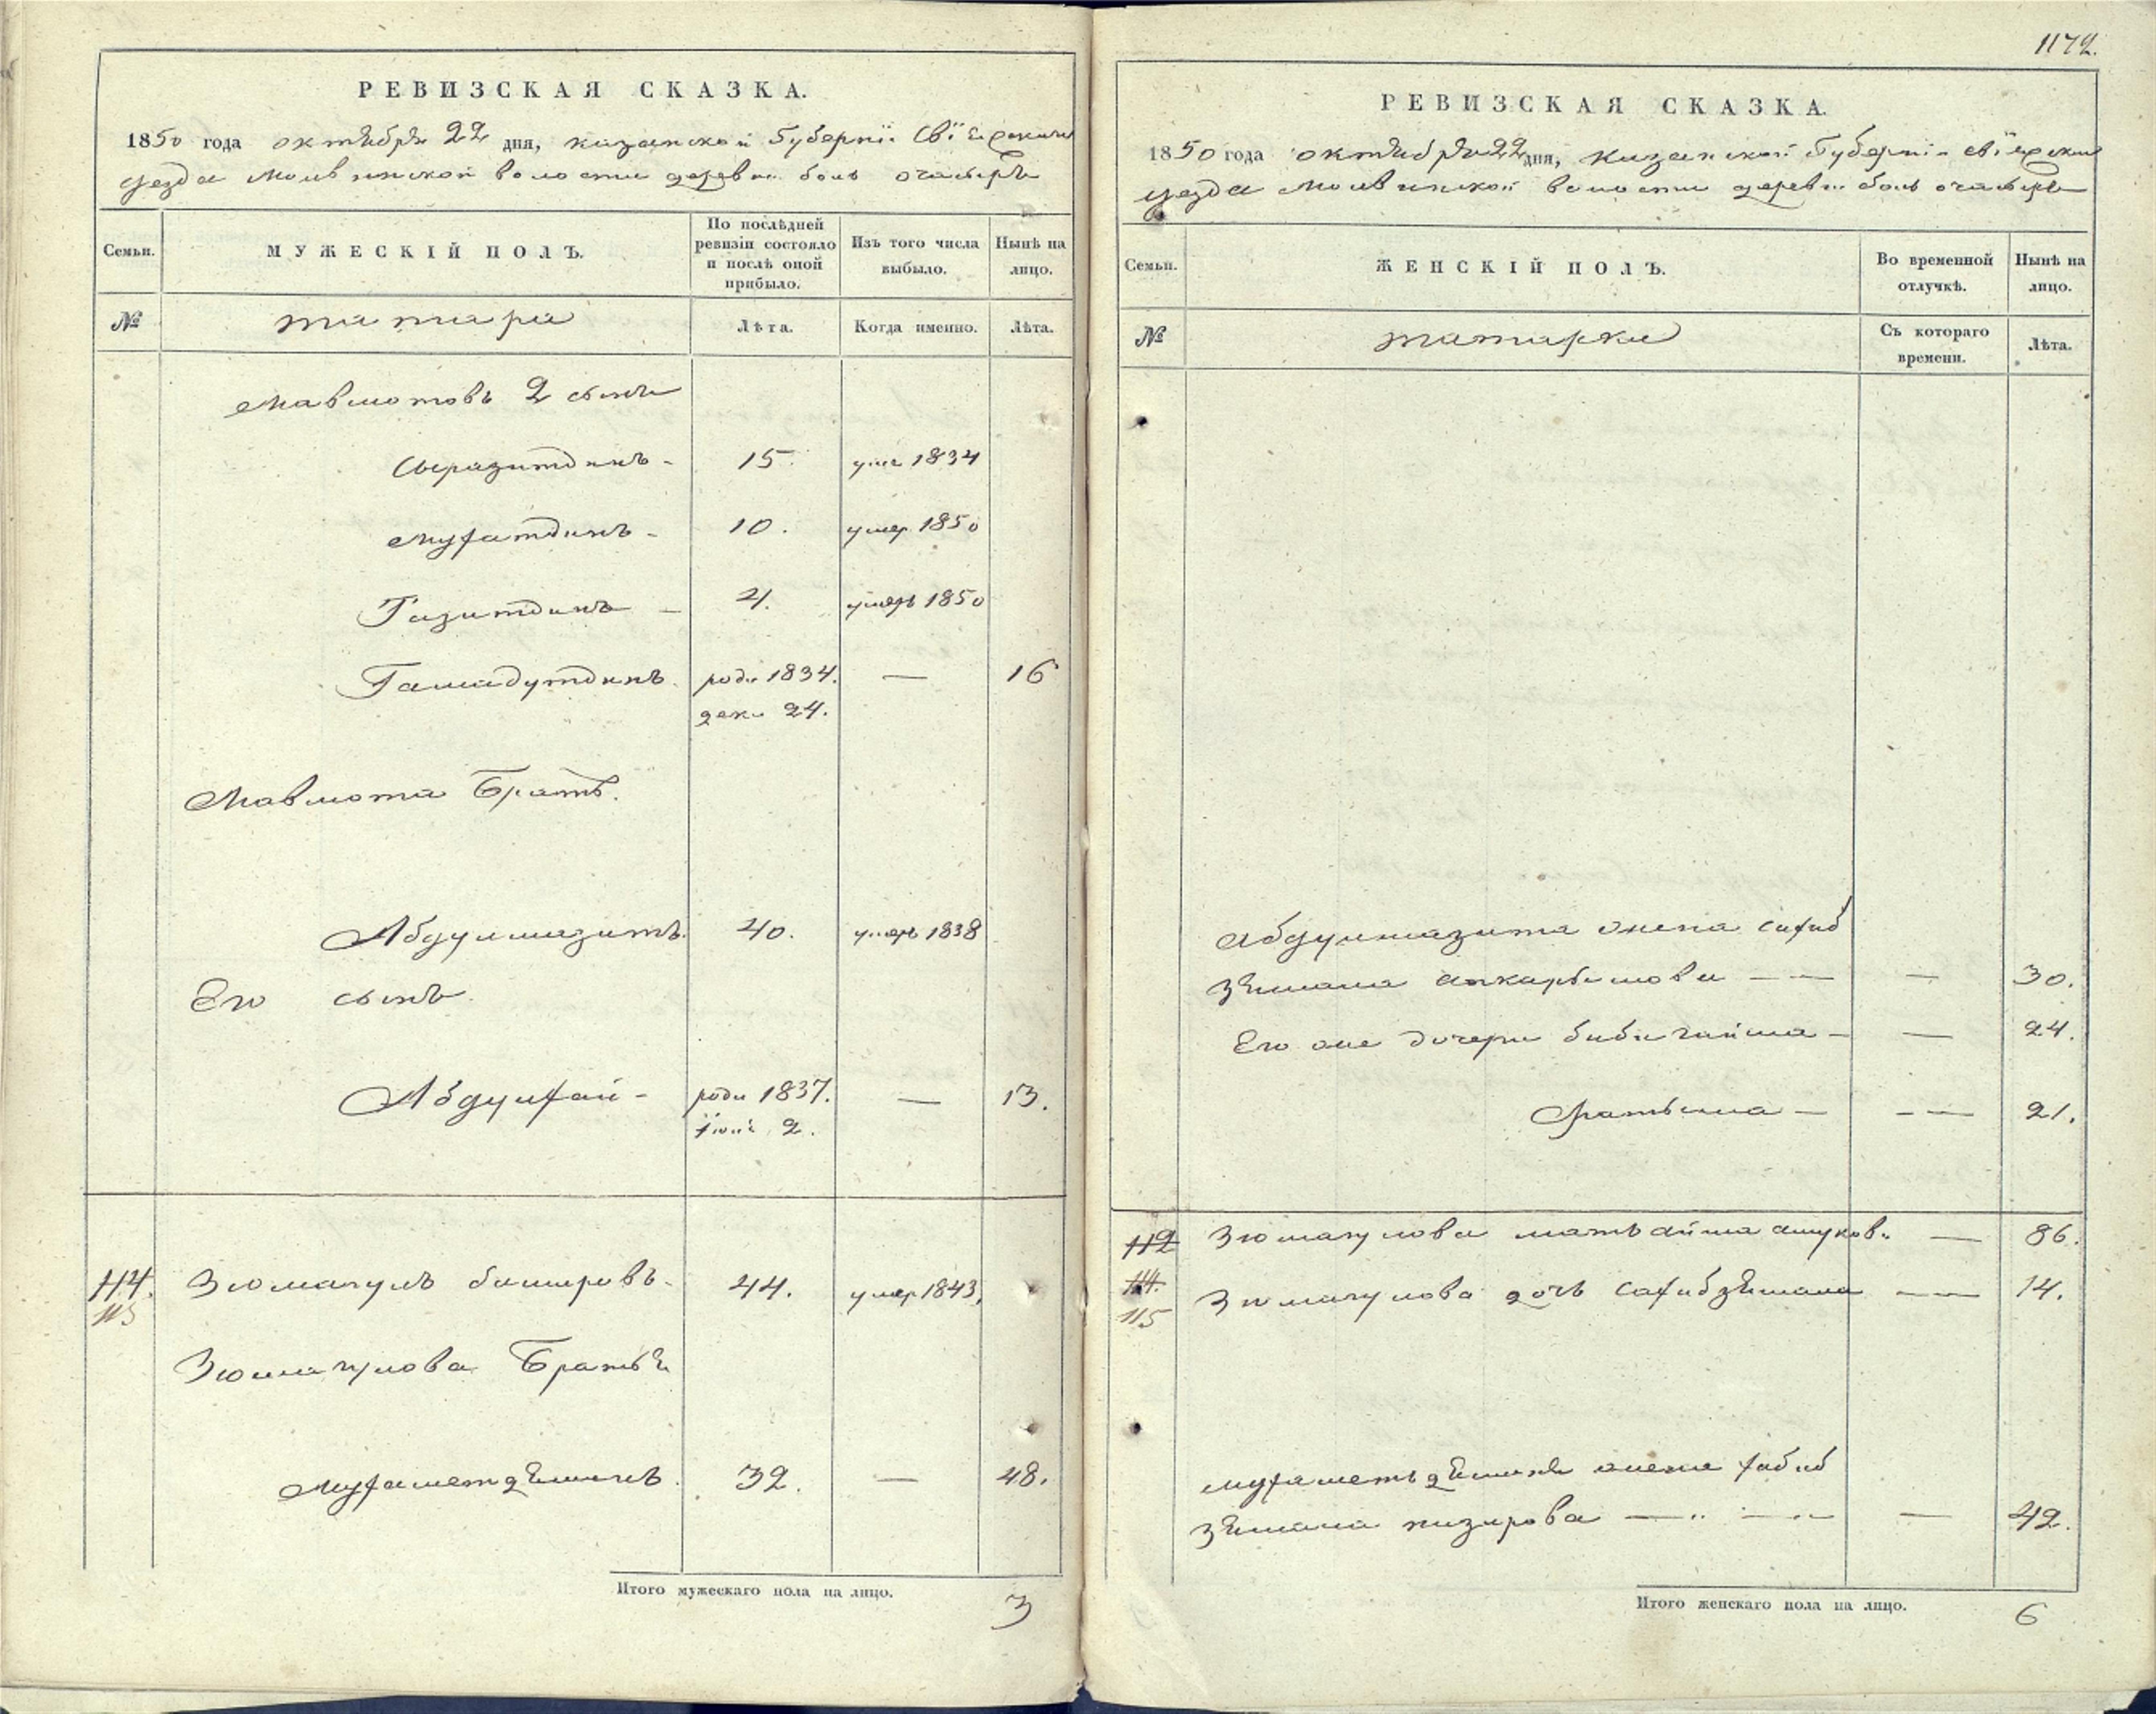 1172.
РЕВИЗСКАЯ СКАЗКА.
1850 года октября 22 дня, казанской Губернiи Свiяжскаго
уезда Молвинской волости деревни боль очасыръ
Семьи. МУЖЕСКІЙ ПОЛЪ. По послѣдней ревизіи состояло и послѣ оной прибыло. Изъ того числа выбыло. Нынѣ на лицо.
№ татара Лѣта. Когда именно. Лѣта.
Мавлютовъ 2 сынъ
Сыразитдинъ - 15. уме 1834
Мухатдинъ - 10. умер 1850
Газитдинъ - 4. умеръ 1850
Гамадутдинъ. роди 1834. — 16
дек. 24.
Мавлюта Братъ.
Абдулмазитъ. 40. умеръ 1838
Его сынъ
Абдулхай - роди 1837. — 13.
2.
114. Зюмагулъ башировъ. 44. умер 1843,
115
Зюмагулова Братья
Мухаметзянъ. 32. — 48.
Итого мужескаго пола на лицо. 3
РЕВИЗСКАЯ СКАЗКА.
1850 года октября 22 дня, казанской Губернiи свiяжскаго
уезда Молвинской волости деревни боль очасыръ
Семьи. ЖЕНСКІЙ ПОЛЪ. Во временной отлучкѣ. Нынѣ на лицо.
№ татарки Съ котораго времени. Лѣта.
Абдулмазита жена сахиб
зямала — — — 30.
Его же дочери бибигайша — — 24.
Фатьима — — — 21.
112 Зюмагулова мать айша — 86.
114. Зюмагулова дочь сахибзямала — — 14.
115
мухаметьзяна жена хабиб
зямала низирова — — — 42.
Итого женскаго пола на лицо. 6